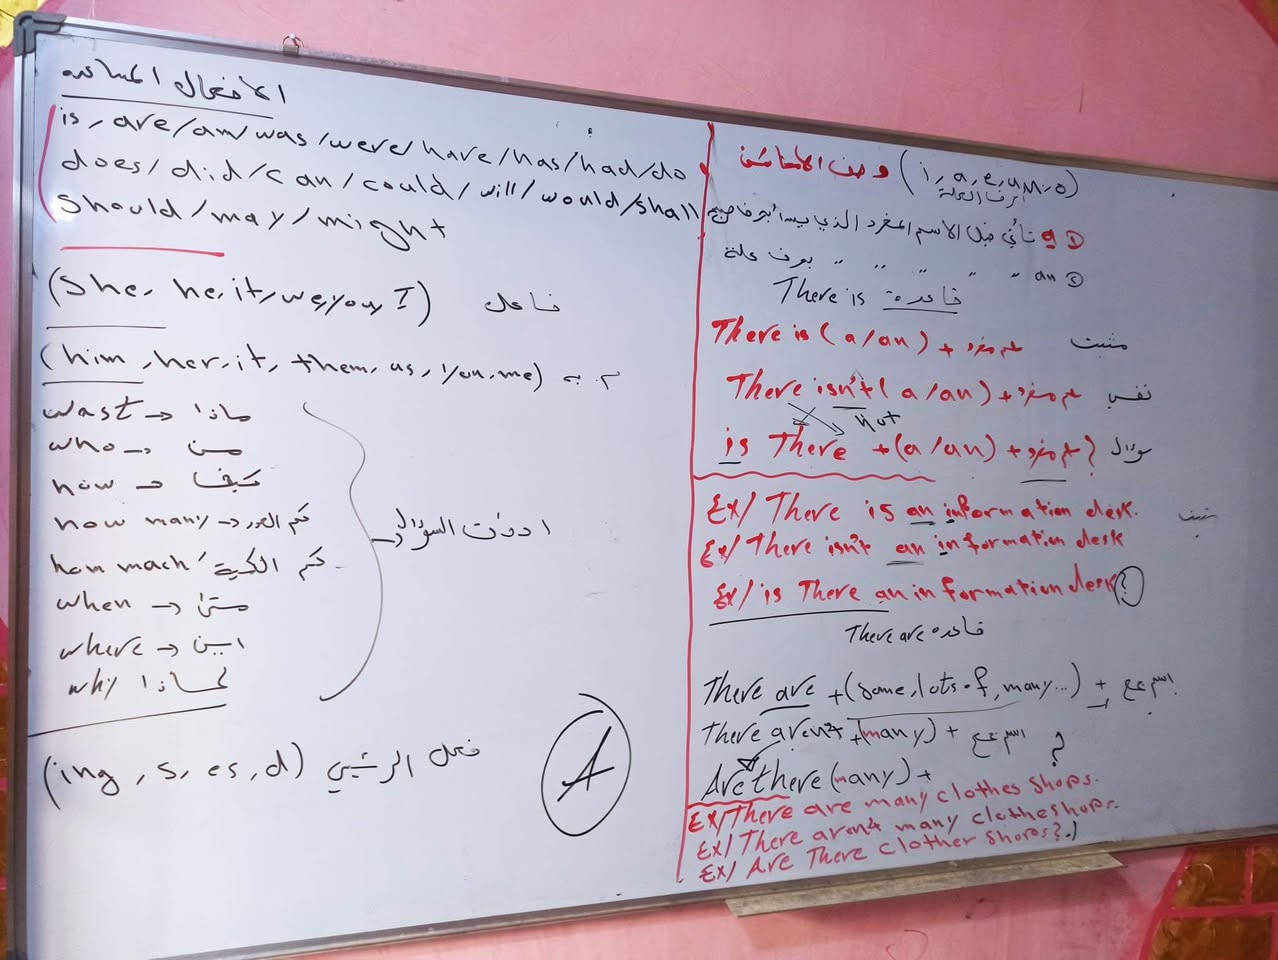 الافعال المساعدة
is, are/am/was/were/have/has/had/do
does/did/can/could/will/would/shall
should/may/might
(She, he, it, we, you, I) فاعل
(him, her, it, them, us, you, me) م به
wast → ماذا
who → من
how → كيف
how many → كم العدد
how mach كم الكمية
when → متى
where → اين
why لماذا
ادوات السؤال
(ing, s, es, d) فعل الرئيسي
A
وصف الأماكن (i, a, e, u, o)
احرف العلة
① a تأتي قبل الاسم المفرد الذي يبدأ بحرف صحيح
② an " " " " " بحرف علة
There is قاعدة
There is (a/an) + اسم مفرد مثبت
There isn't (a/an) + اسم مفرد نفي
not
is There + (a/an) + اسم مفرد ? سؤال
Ex/ There is an information desk. مثبت
Ex/ There isn't an information desk
Ex/ is There an information desk?
There are قاعدة
There are + (some, lots of, many...) + اسم جمع
There aren't + (many) + اسم جمع
Are there (many) + ?
Ex/ There are many clothes shops.
Ex/ There aren't many clotheshops.
Ex/ Are There clother shops?